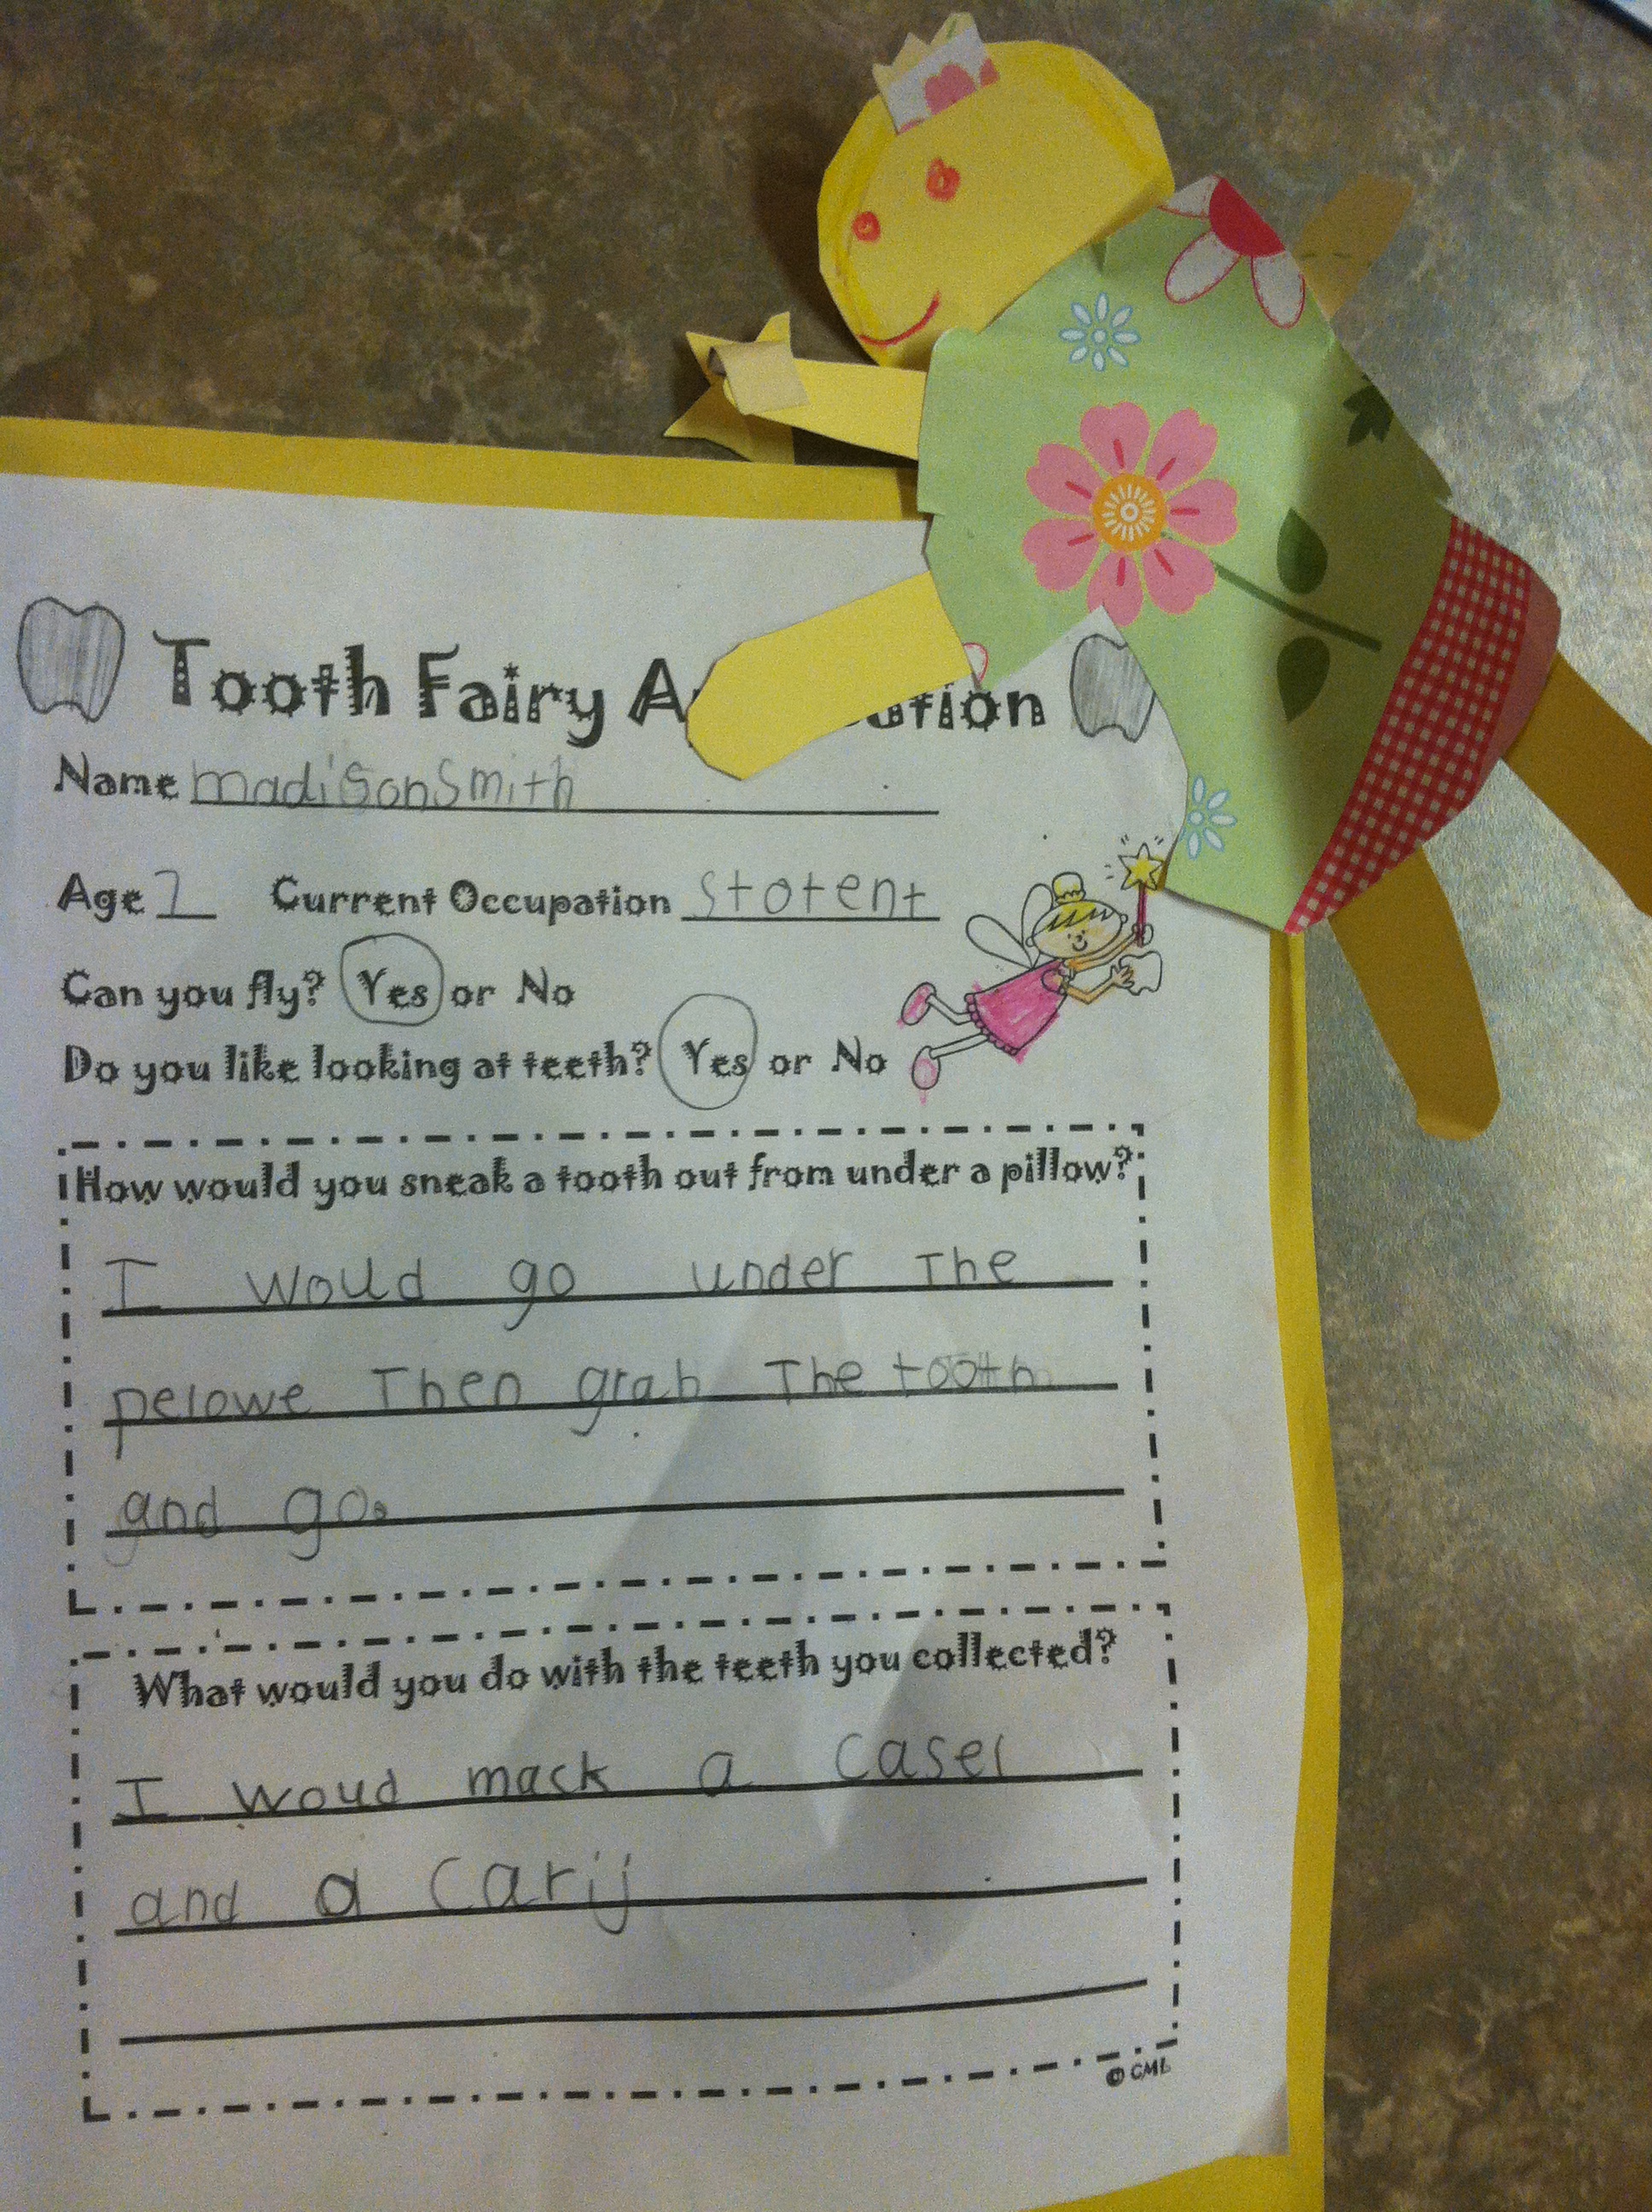 Tooth Fairy A ation
Name madison Smith
Age 7 Current Occupation Stotent
Can you fly? Yes or No
Do you like looking at teeth? Yes or No
How would you sneak a tooth out from under a pillow?
I woud go under The
pelowe Then grab The tooth
and go.
What would you do with the teeth you collected?
I woud mack a casel
and a carij
© CML